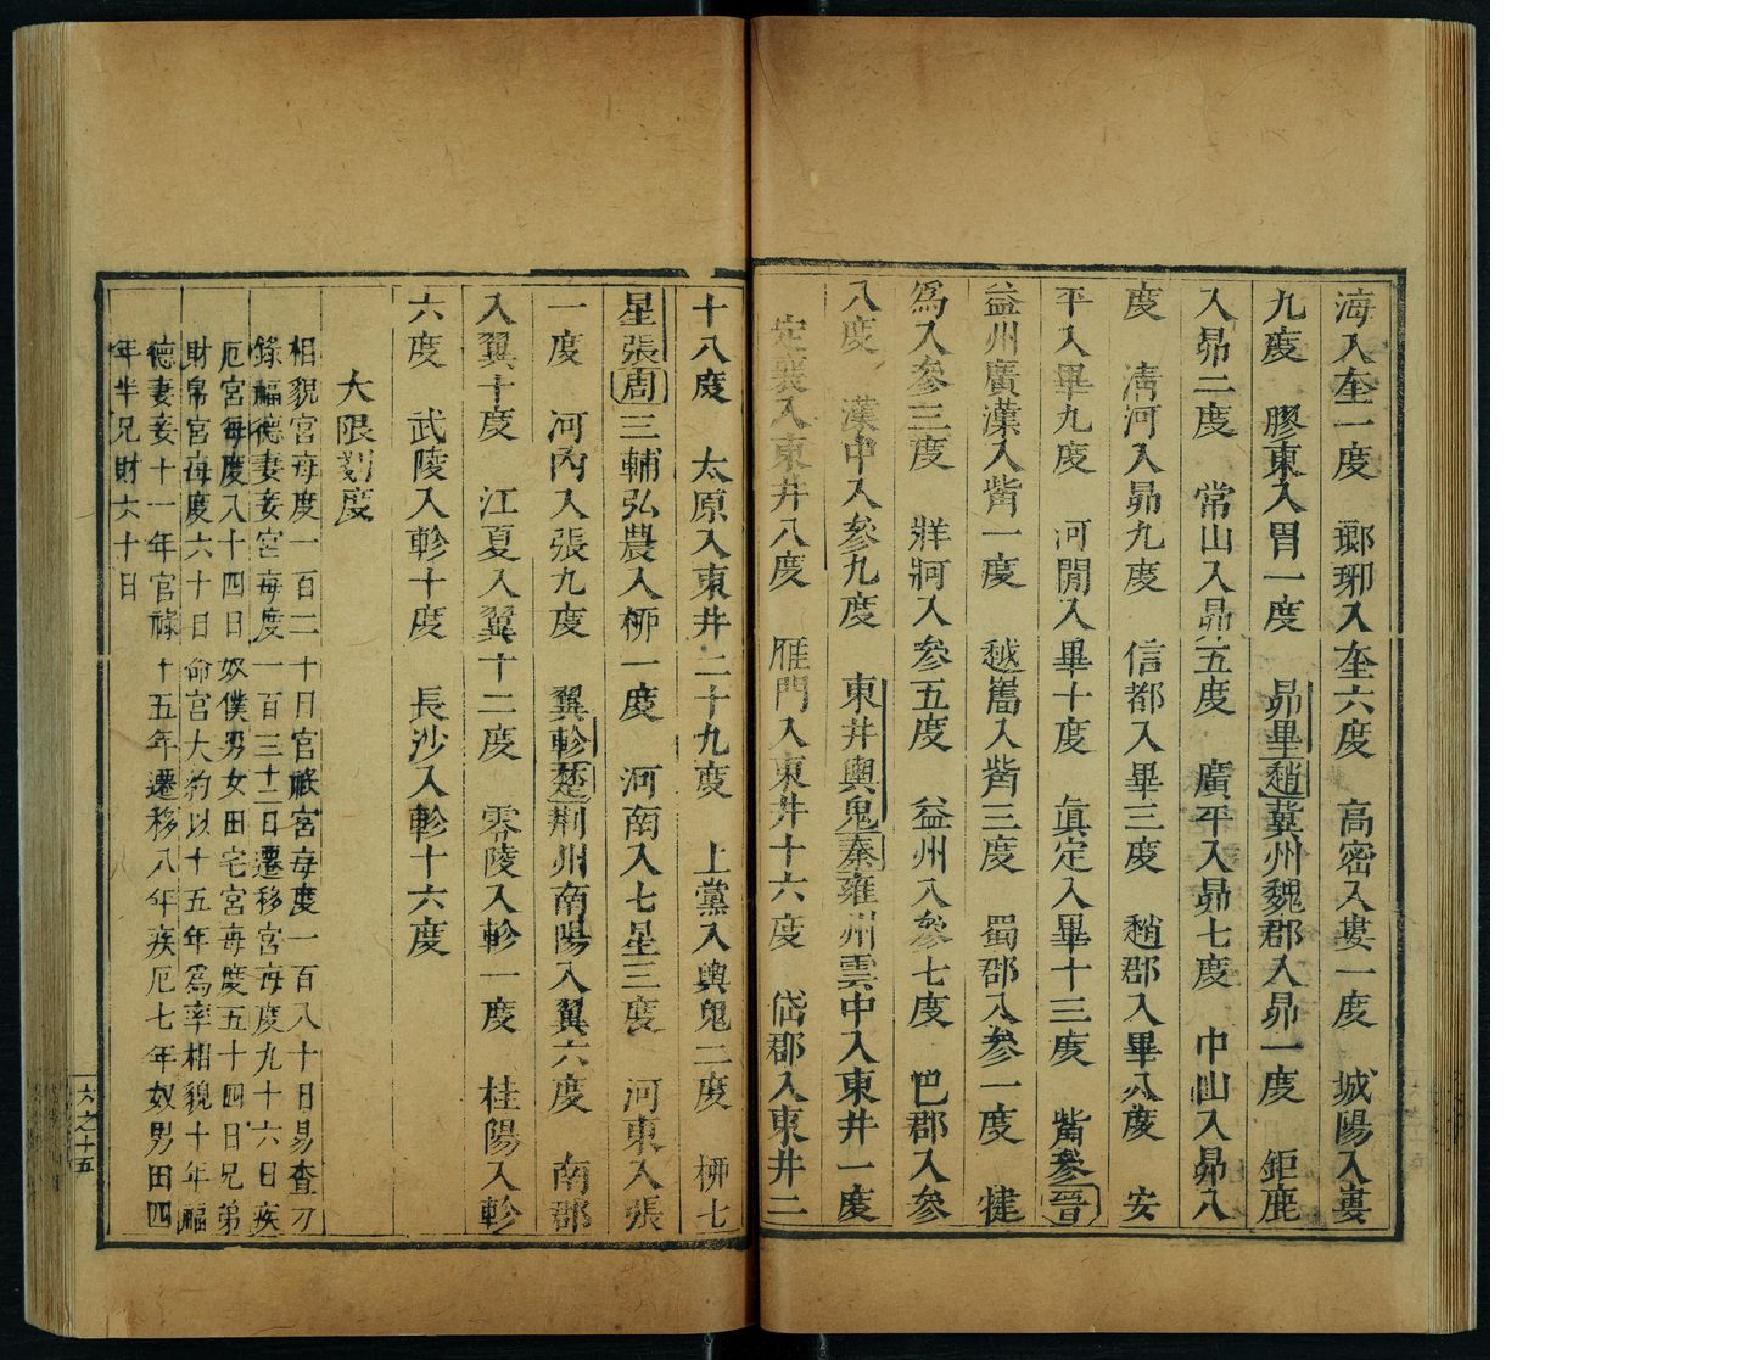 海入奎一度　瑯琊入奎六度　高密入婁一度　城陽入婁
九度　膠東入胃一度　昴畢趙冀州魏郡入昴一度　鉅鹿
入昴二度　常山入昴五度　廣平入昴七度　中山入昴八
度　清河入昴九度　信都入畢三度　趙郡入畢八度　安
平入畢九度　河間入畢十度　真定入畢十三度　觜參晉
益州廣漢入觜一度　越巂入觜三度　蜀郡入參一度　犍
為入參三度　牂牁入參五度　益州入參七度　巴郡入參
八度　漢中入參九度　東井輿鬼秦雍州雲中入東井一度
定襄入東井八度　雁門入東井十六度　岱郡入東井二
十八度　太原入東井二十九度　上黨入輿鬼二度　柳七
星張周三輔弘農入柳一度　河南入七星三度　河東入張
一度　河內入張九度　翼軫楚荊州南陽入翼六度　南郡
入翼十度　江夏入翼十二度　零陵入軫一度　桂陽入軫
六度　武陵入軫十度　長沙入軫十六度
大限刻度
相貌宮每度一百二十日官祿宮每度一百八十日易查刀
錄福德妻妾宮每度一百三十二日遷移宮每度九十六日疾
厄宮每度八十四日奴僕男女田宅宮每度五十四日兄弟
財帛宮每度六十日命宮大約以十五年為率相貌十年福
德妻妾十一年官祿十五年遷移八年疾厄七年奴男田四
年半兄財六十日
六之十五